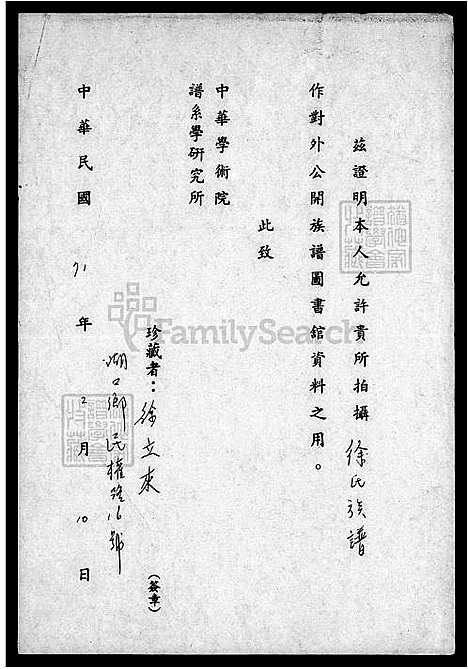 茲證明本人允許貴所拍攝徐氏族譜
作對外公開族譜圖書館資料之用。
此致
中華學術院
譜系學研究所
珍藏者：徐立來（簽章）
湖口鄉民權路16號
中華民國71年2月10日
FamilySearch